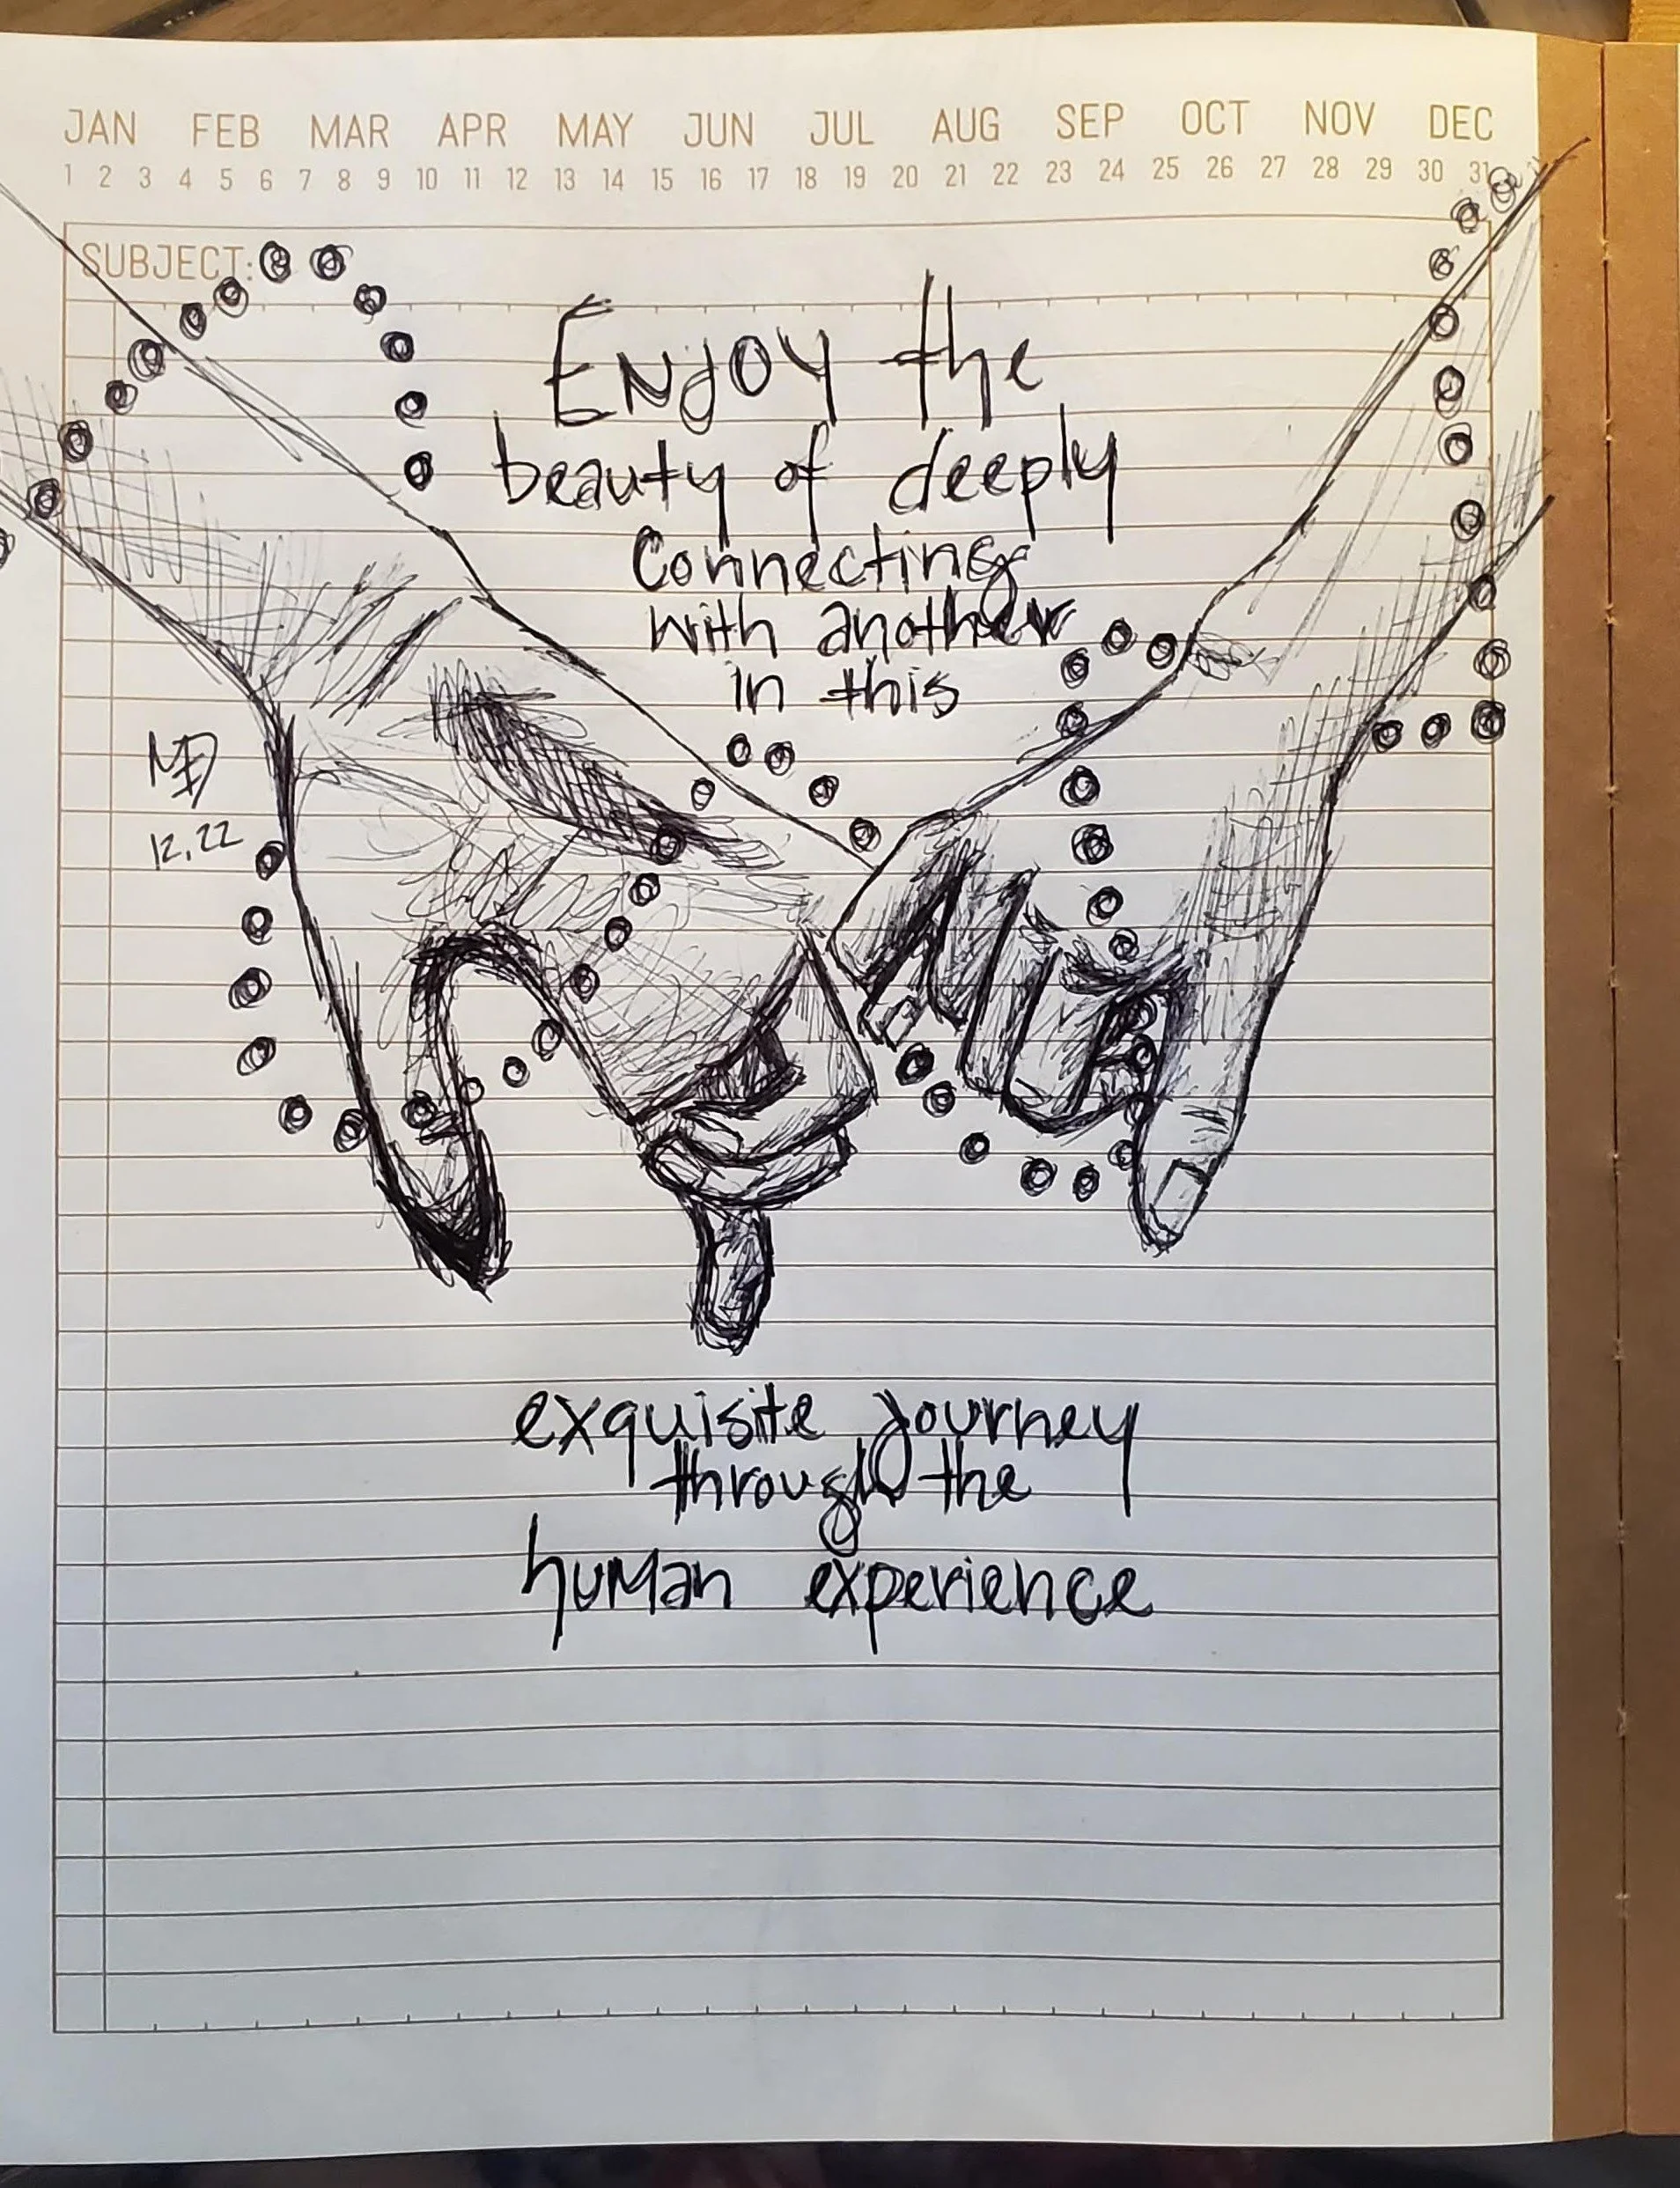 JAN FEB MAR APR MAY JUN JUL AUG SEP OCT NOV DEC
1 2 3 4 5 6 7 8 9 10 11 12 13 14 15 16 17 18 19 20 21 22 23 24 25 26 27 28 29 30 31
SUBJECT:
ENJOY the
beauty of deeply
Connecting
with another
in this
12.22
exquisite journey
through the
human experience